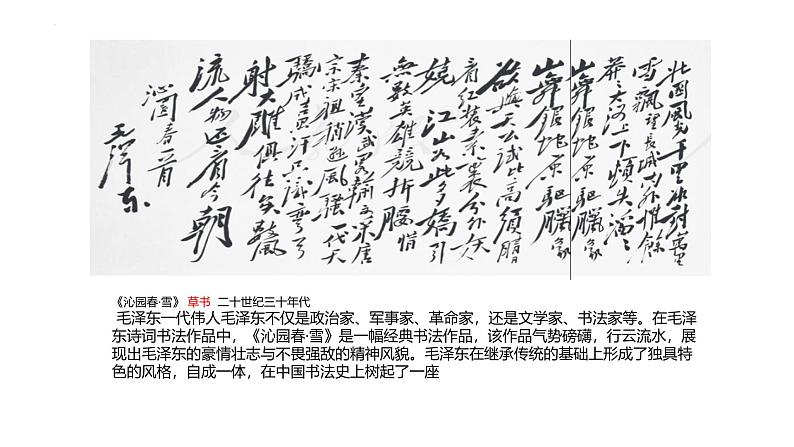 北国風光千里冰封萬里
雪飘望長城内外惟餘
莽莽大河上下頓失滔滔
山舞银蛇原驰臘象
山舞银蛇原驰臘象
欲與天公試比高須晴
日看红装素裹分外妖
娆 江山如此多嬌引
無數英雄競折腰惜
秦皇漢武略输文采唐
宗宋祖稍逊风骚一代天
驕成吉思汗只識彎弓
射大雕俱往矣數風
流人物还看今朝
沁園春一首
毛泽东
《沁园春·雪》 草书 二十世纪三十年代
毛泽东一代伟人毛泽东不仅是政治家、军事家、革命家，还是文学家、书法家等。在毛泽
东诗词书法作品中，《沁园春·雪》是一幅经典书法作品，该作品气势磅礴，行云流水，展
现出毛泽东的豪情壮志与不畏强敌的精神风貌。毛泽东在继承传统的基础上形成了独具特
色的风格，自成一体，在中国书法史上树起了一座